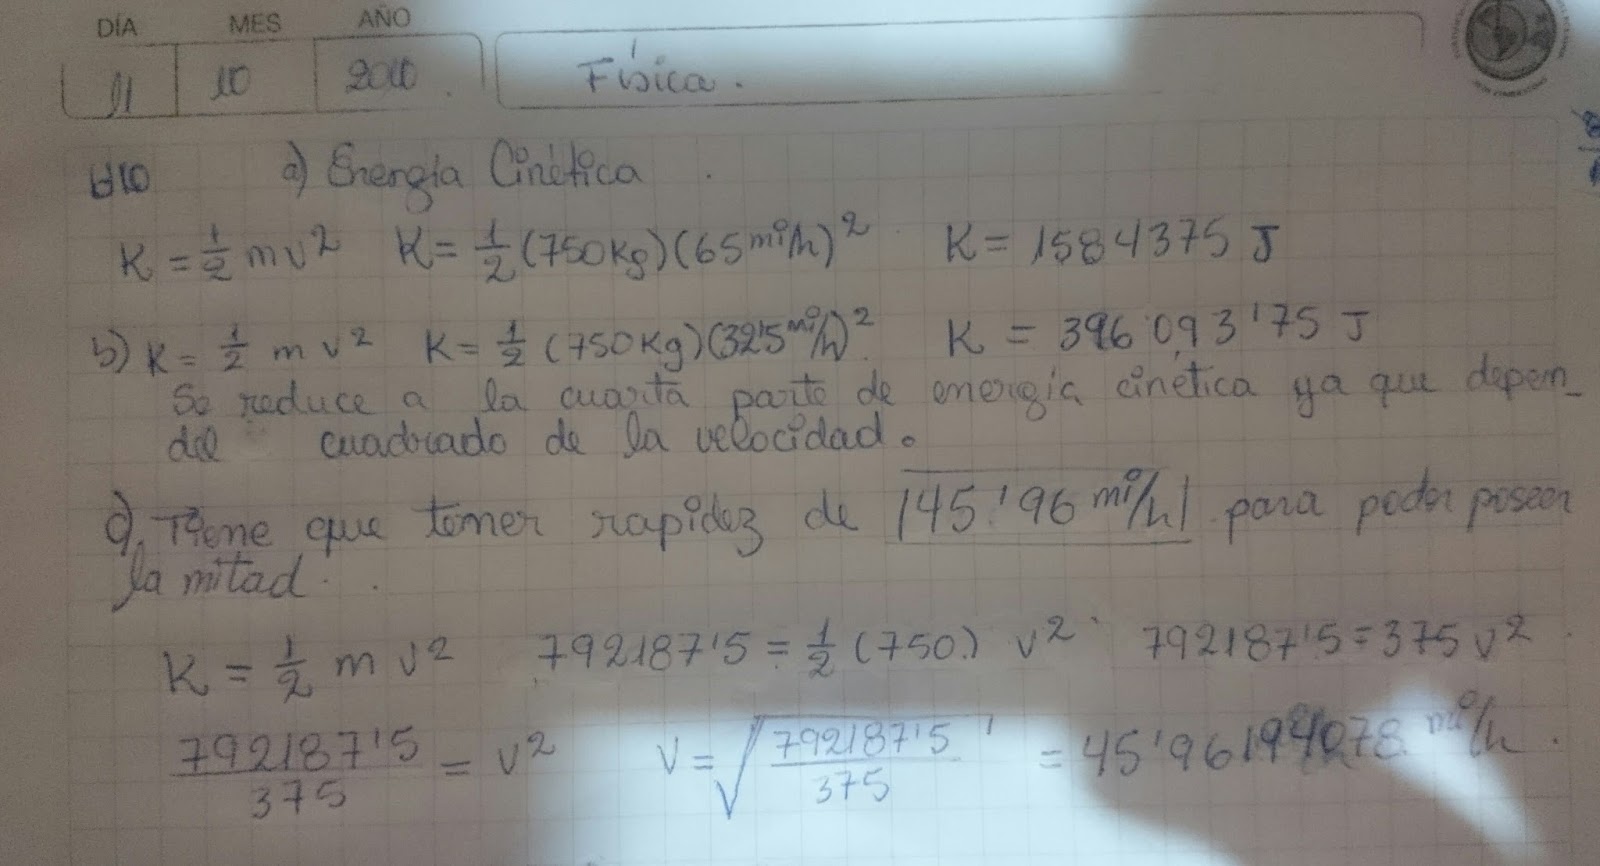 DÍA MES AÑO
11 10 2010 Física.
a) Energía Cinética.
K = 1/2 m v² K = 1/2 (750Kg)(65mi/h)² K = 1584375 J
b) K = 1/2 m v² K = 1/2 (750Kg)(32'5mi/h)² K = 396093'75 J
Se reduce a la cuarta parte de energía cinética ya que depen-
del cuadrado de la velocidad.
c) Tiene que tener rapidez de |45'96 mi/h| para poder poseer
la mitad.
K = 1/2 m v² 792187'5 = 1/2 (750) v² 792187'5 = 375 v²
792187'5/375 = v² v = √(792187'5/375) = 45'96194078 mi/h.